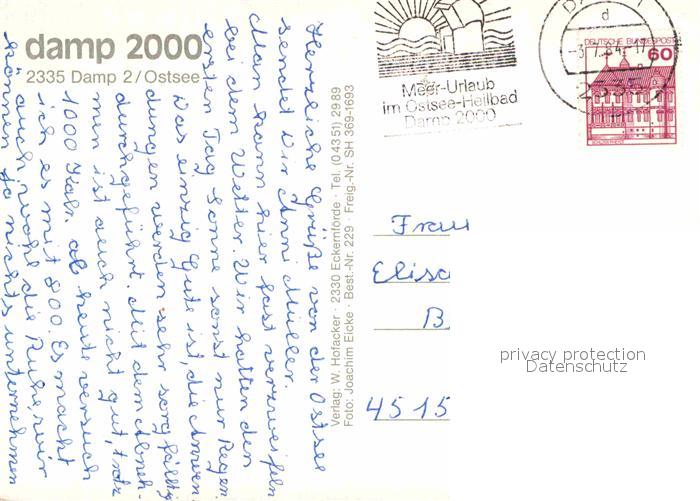 damp 2000
2335 Damp 2/Ostsee
Herzliche Grüße von der Ostsee
sendet Dir Anni Müller.
Man kann hier fast verzweifeln
bei dem Wetter. Wir hatten den
ersten Tag Sonne sonst nur Regen.
Das einzig Gute ist, die Anwen-
dungen werden sehr sorgfältig
durchgeführt. Mit dem Abneh-
men ist auch nicht gut, trotz
1000 Kalr. ab heute versuch
ich es mit 800. Es macht
auch wohl die Ruhe, wir
können ja nichts unternehmen
Verlag: W. Hofacker · 2330 Eckernförde · Tel. (0 43 51) 29 89
Foto: Joachim Eicke · Best.-Nr. 229 · Freig.-Nr. SH 369-1693
Meer-Urlaub
im Ostsee-Heilbad
Damp 2000
d
2335
DEUTSCHE BUNDESPOST
60
Frau
Elisa
B
4515
privacy protection
Datenschutz